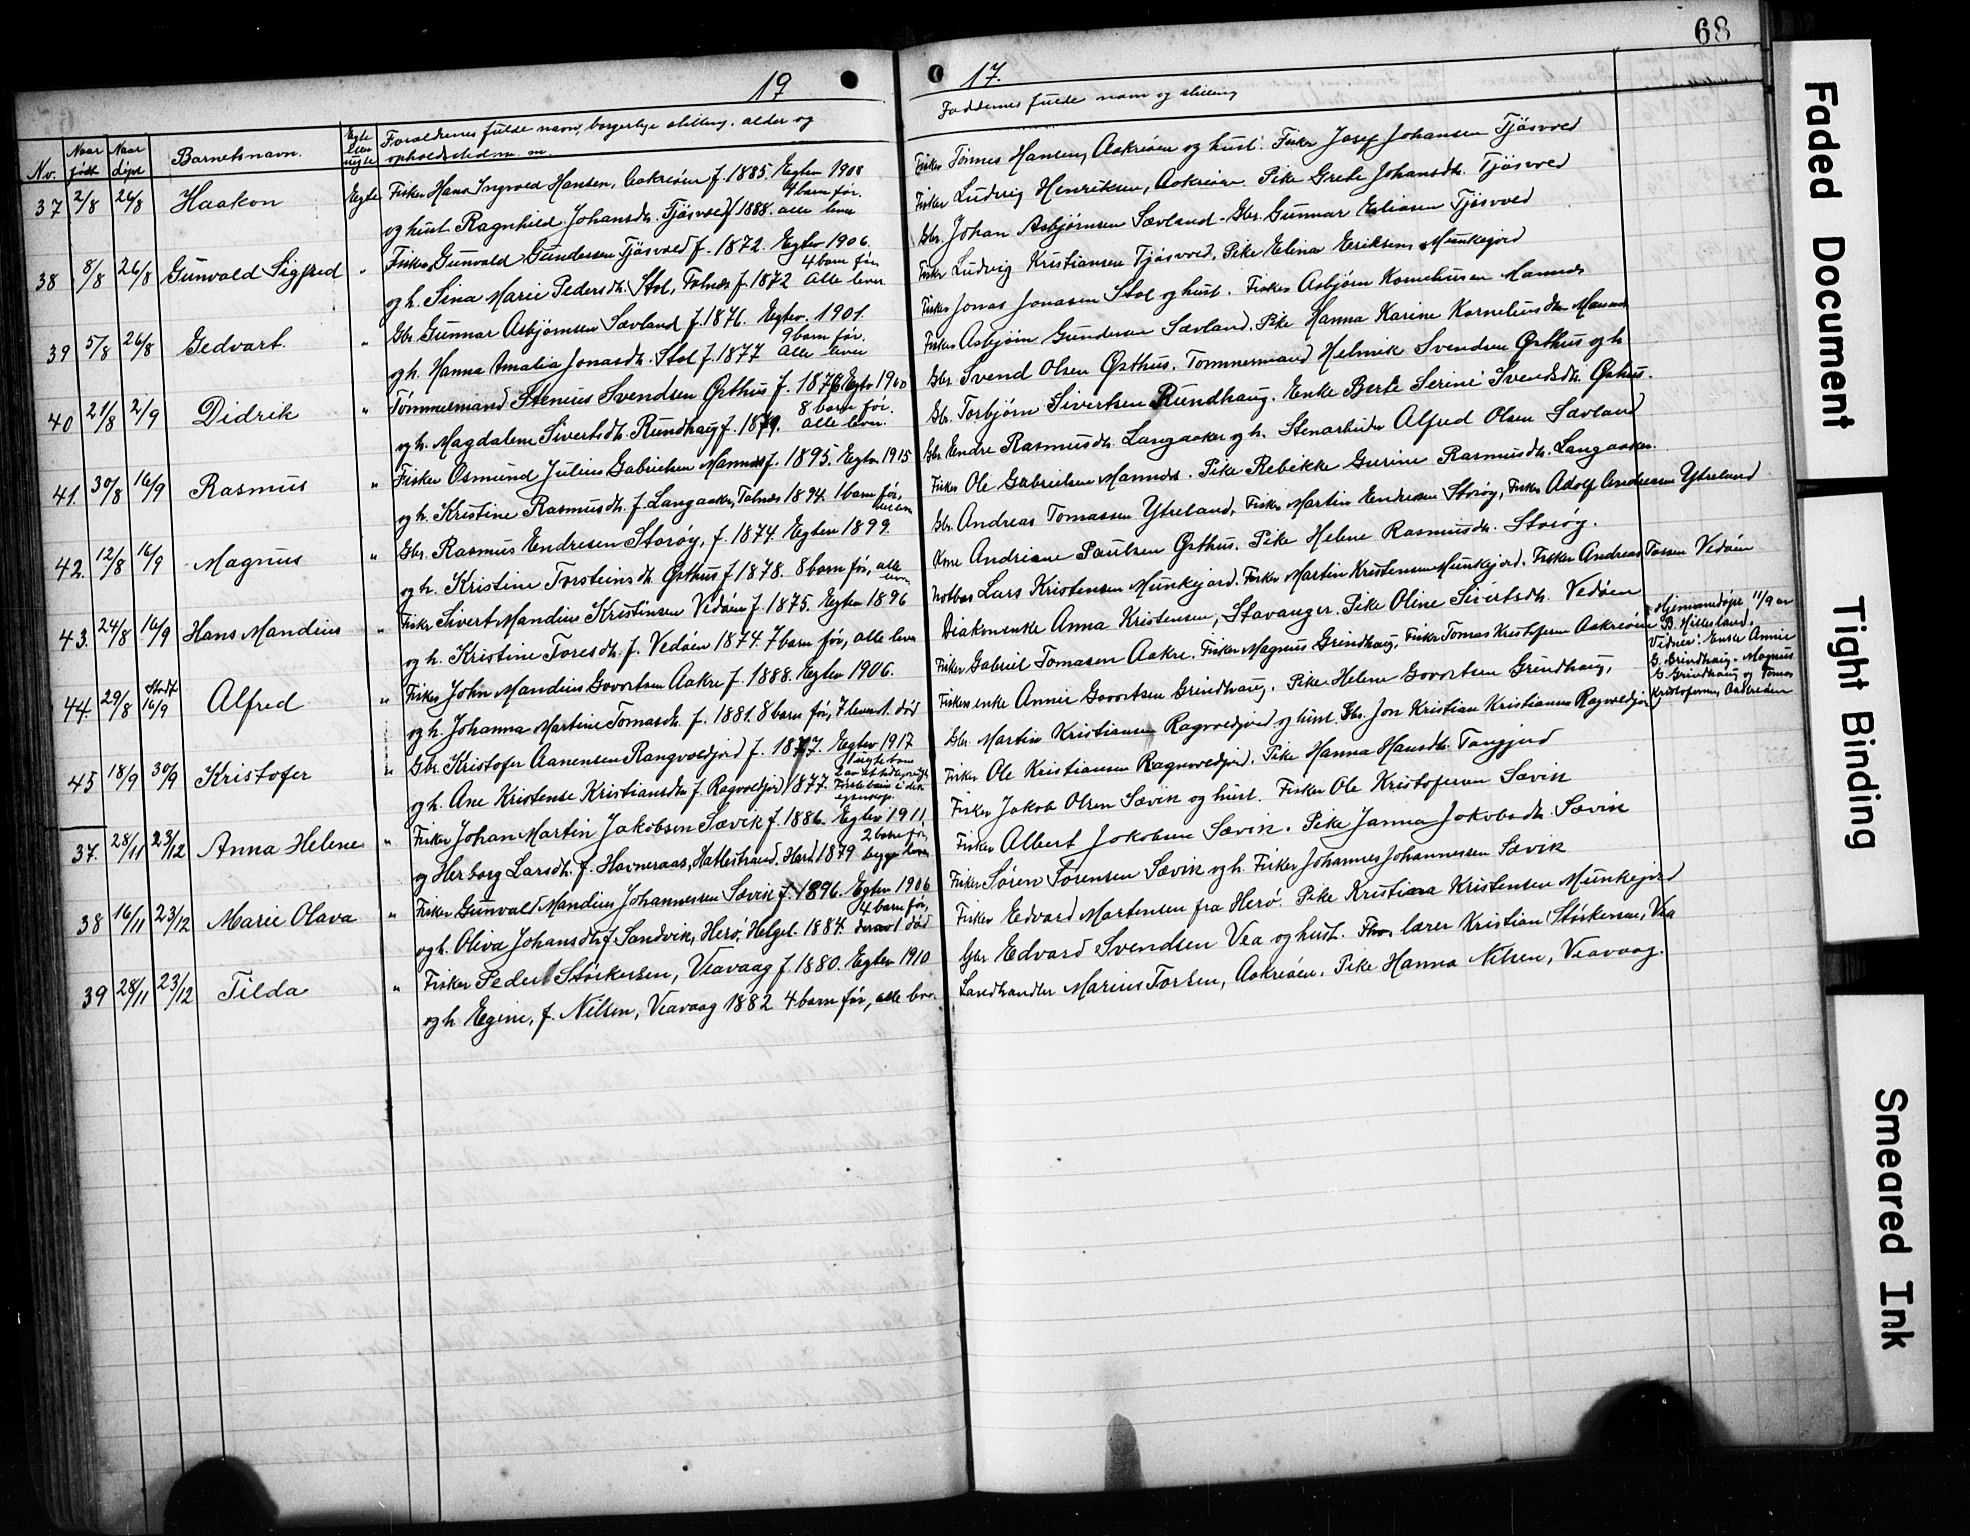 68
19
17.
No.
Naar født
Naar døpt
Barnets navn.
Egte eller uegte
Forældrenes fulde navn, borgerlige stilling, alder og opholdssted m. m.
Faddernes fulde navn og stilling
37 2/8 26/8 Haakon Egte Fisker Hans Ingvold Hansen, Aakreøen f. 1885. Egtev 1908
og hust. Ragnhild Johansdt. Tjøsvold f 1888. 4 barn før. alle lever
Fisker Tønnes Hansen, Aakreøen og hust. Fisker Josef Johansen Tjøsvold
Fisker Ludvig Henriksen, Aakreøen. Pike Grete Johansdt. Tjøsvold
38 8/8 26/8 Gunvald Sigfred " Fisker Gunvald Gundersen Tjøsvold f. 1872. Egtev 1906.
og h. Sina Marie Pedersdt. Stol, Falnes f. 1872 4 barn før. Alle lever
Gbr. Johan Asbjørnsen Sævland. Gbr. Gunnar Eliasen Tjøsvold
Fisker Ludvig Kristiansen Tjøsvold. Pike Elina Eriksen Munkejord
39 5/8 26/8 Gedvart. " Gbr. Gunnar Asbjørnsen Sævland f. 1876. Egtev. 1901.
og h. Hanna Amalia Jonasdt. Stol f. 1877 9 barn før. Alle lever
Fisker Jonas Jonasen Stol og hust. Fisker Asbjørn Korneliusen Mannes
Fisker Asbjørn Gundersen Sævland. Pike Hanna Karine Korneliusdtr Mannes
40 21/8 2/9 Didrik " Tømmermand Stenius Svendsen Østhus f. 1876 Egtev 1900
og h. Magdalene Sivertsdt. Rundhaug f. 1879. 8 barn før. alle lever.
Gbr. Svend Olsen Østhus. Tømmermand Helmik Svendsen Østhus og h
Gbr. Torbjørn Sivertsen Rundhaug. Enke Berte Serine Svendsdt. Østhus.
41. 30/8 16/9 Rasmus " Fisker Osmund Julius Gabrielsen Mannes f. 1895. Egtev 1915
og h. Kristine Rasmusdt. f. Langaaker, Falnes 1894. 1 barn før,
Gbr Endre Rasmusdt. Langaaker og h. Stenarbeider Alfred Olsen Sævland
Fisker Ole Gabrielsen Mannes. Pike Rebekke Gurine Rasmusdt. Langaaker.
42. 12/8 16/9 Magnus " Gbr. Rasmus Endresen Storøy, f. 1874. Egtev 1899.
og h. Kristine Torsteinsdt. Østhus f 1878. 8 barn før, alle lever
Gbr. Andreas Tomassen Ytreland, Fisker Martin Endresen Storøy, Fisker Adolf Andreasen Ytreland
Kone Andriane Paulsen Østhus. Pike Helene Rasmusdt. Storøy.
43. 24/8 16/9 Hans Mandius " Fisker Sivert Mandius Kristinsen Vedøen f. 1875. Egtev 1896
og h. Kristine Toresdt. f. Vedøen 1874. 7 barn før, alle lever
Notbas Lars Kristensen Munkejord. Fisker Martin Kristensen Munkejord. Fisker Andreas Tossen Vedøen
Diakonenke Anna Kristensen, Stavanger. Pike Oline Sivertsdt. Vedøen
44. 29/8 Stadf. 16/9 Alfred " Fisker John Mandius Govertsen Aakre f. 1888. Egtev 1906.
og h. Johanna Martine Tomasdt. f. 1881. 8 barn før, 7 lever 1 død
Fisker Gabriel Tomasen Aakre. Fisker Magnus Grindhaug, Fisker Tomas Kristofersen Aakreøen
Fiskerenke Annie Govertsen Grindhaug. Pike Helene Govertsen Grindhaug,
Hjemmedøpt 11/9 av
B. Hillesland.
Vidner: Enke Annie
G. Grindhaug - Magnus
G. Grindhaug og Tomas
Kristofersen, Aakreøen
45 18/9 30/9 Kristofer " Gbr. Kristofer Aanensen Rangvoldjord f. 1877. Egtev 1917
og h. Ane Kristense Kristiansdt. f. Ragvoldjord 1877. Første barn i dette egteskap.
Gbr. Martin Kristiansen Ragvoldjord og hust. Gbr. Jon Kristian Kristiansen Ragvoldjord
Fisker Ole Kristiansen Ragnvoldjord. Pike Hanna Hansdt. Tangjerd
37. 28/11 23/12 Anna Helene " Fisker Johan Martin Jakobsen Sævik f. 1886. Egtev 1911
og Herborg Larsdt. f. Havneraas, Hattestrand. Hard. 1879 2 barn før, begge lever
Fisker Jakob Olsen Sævik og hust. Fisker Ole Kristofersen Sævik
Fisker Albert Jokobsen Sævik. Pike Janna Jokobsdt. Sævik
38 16/11 23/12 Marie Olava " Fisker Gunvald Mandius Johannessen Sævik f. 1896. Egtev 1906
og h. Oliva Johansdt. f. Sandvik, Herø, Helgel. 1884. 4 barn før, derav 1 død
Fisker Søren Sørensen Sævik og h. Fisker Johannes Johannessen Sævik
Fisker Edvard Martensen fra Herø. Pike Kristiana Kristensen Munkejord
39 28/11 23/12 Tilda " Fisker Peder Størkersen, Veavaag f. 1880. Egtev 1910
og h. Egine, f. Nilsen, Veavaag 1882 4 barn før, alle lever.
Gbr Edvard Svendsen Vea og hust. Fhv. lærer Kristian Størkersen, Vea
Landhandler Marius Torsen, Aakreøen. Pike Hanna Nilsen, Veavaag.
Faded Document
Tight Binding
Smeared Ink